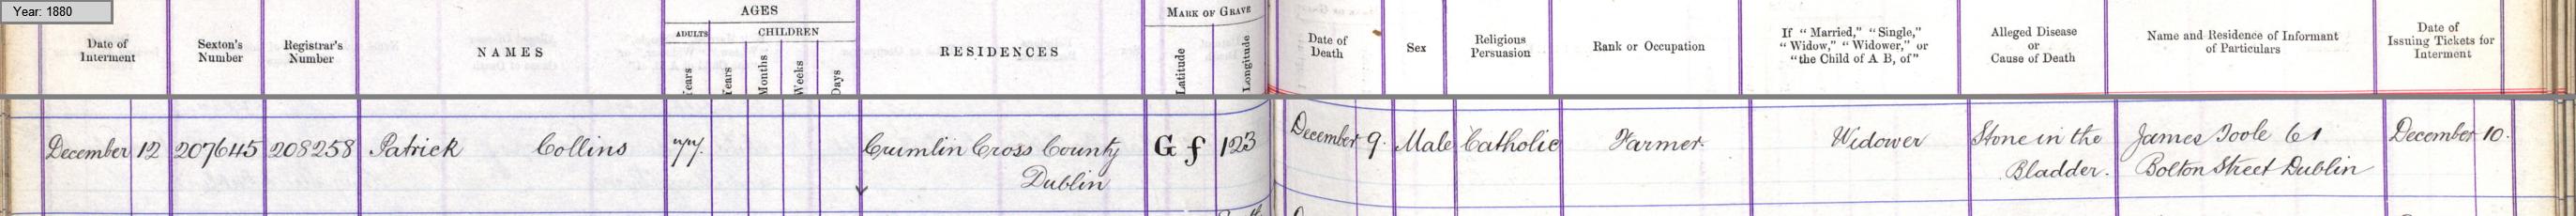 Year: 1880
Date of Interment
Sexton's Number
Registrar's Number
NAMES
AGES
ADULTS
CHILDREN
Years
Years
Months
Weeks
Days
RESIDENCES
MARK OF GRAVE
Latitude
Longitude
Date of Death
Sex
Religious Persuasion
Rank or Occupation
If "Married," "Single,"
"Widow," "Widower," or
"the Child of A B, of"
Alleged Disease
or
Cause of Death
Name and Residence of Informant
of Particulars
Date of
Issuing Tickets for
Interment
December 12 207645 208258 Patrick Collins 77. Crumlin Cross County G f 123 December 9. Male Catholic Farmer. Widower Stone in the James Toole 61 December 10.
Dublin Bladder. Bolton Street Dublin